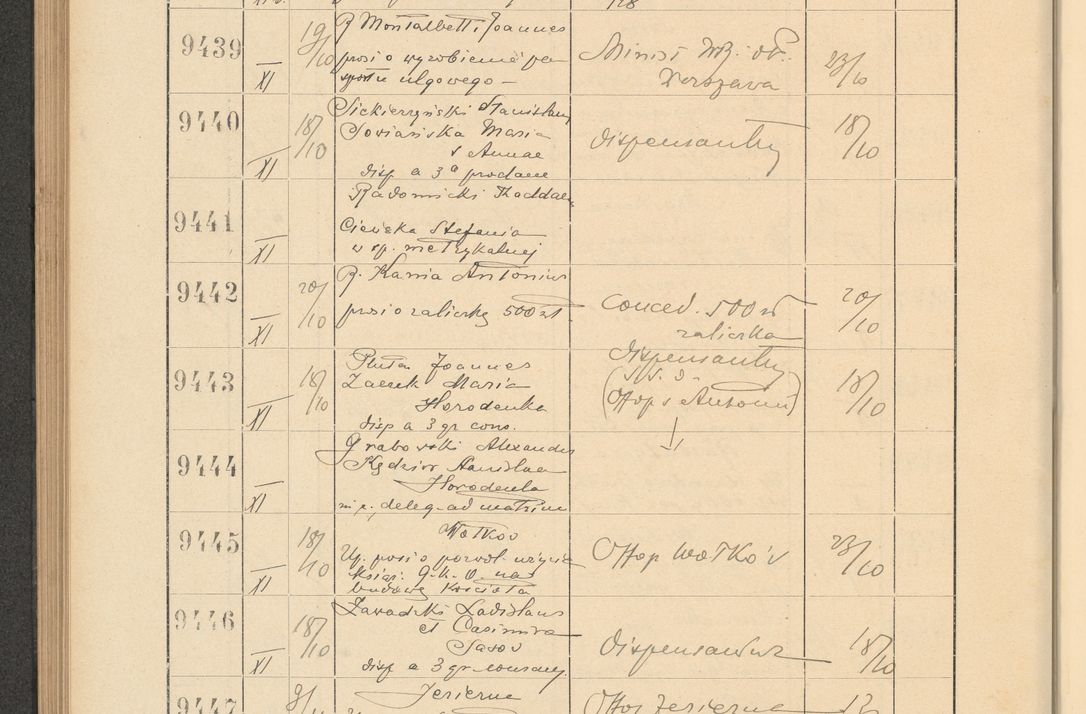 9439 XI 19/10 R. Montalbetti Joannes
prosi o wyrobienie pa
sportu ulgowego –
Minist. W.R. i O.P.
Warszawa 23/10
9440 XI 18/10
Maria
s Annae
disp a 3ª proclam
dispensantur 18/10
9441 XI
Radomicki Thaddaeus
Stefania
w sp. metrykalnej
9442 XI 20/10 R. Kania Antonius
prosi o zaliczkę 500 zł.
conced. 500 zł
zaliczka 20/10
9443 XI 18/10 Pluta Joannes
Maria
Horodenka
disp a 3 gr cons.
dispensantur
18/10
9444 XI
Grabowski Alexander
Kędzior Stanislaa
Horodenka
deleg. ad matrim
9445 XI 18/10 Wołków
Up. prosi o pozwol. użycia
książ. G.K.O. na
budowę Kościoła
Offop Wołków 23/10
9446 XI 18/10 Zawadzki Ladislaus
et Casimira
Sasov
disp a 3 gr consang.
dispensantur 18/10
9447 Jezierna
Offop Jezierna 12